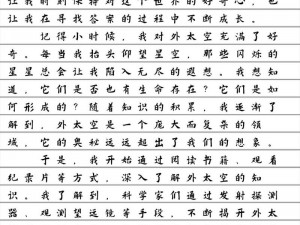 让我们始终保持对这个世界的好奇心，也
让我在寻找答案的过程中不断成长。
记得小时候，我对外太空充满了好
奇。每当我抬头仰望星空，那些闪烁的
星星总会让我陷入无尽的遐想。我想知
道，它们是否也有生命存在？它们是如
何形成的？随着知识的积累，我逐渐了
解到，外太空是一个庞大而复杂的领
域，它的奥秘远远超出了我们的想象。
于是，我开始通过阅读书籍、观看
纪录片等方式，深入了解外太空的知
识。我了解到，科学家们通过发射探测
器、观测望远镜等手段，不断揭开外太